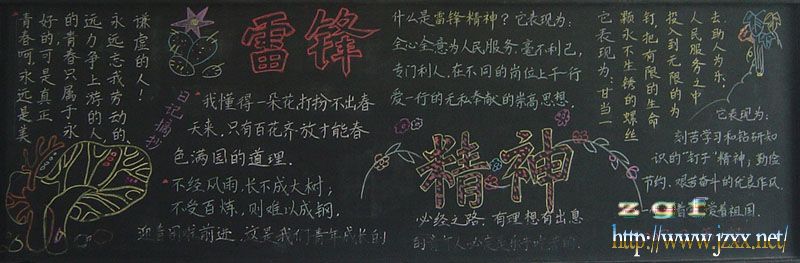 青春呵,永远是美
好的可是真正
的青春只属于永
远力争上游的人
永远忘我劳动的、
谦虚的人!
雷锋
日记摘抄
我懂得一朵花打扮不出春
天来,只有百花齐放才能春
色满园的道理.
不经风雨,长不成大树;
不受百炼,则难以成钢,
迎着困难前进,这是我们青年成长的
必经之路,有理想有出息
什么是雷锋精神?它表现为:
全心全意为人民服务.毫不利己,
专门利人,在不同的岗位上干一行
爱一行的无私奉献的崇高思想.
精神
它表现为:甘当一
颗永不生锈的螺丝
钉,把有限的生命
投入到无限的为
人民服务之中
去助人为乐.
它表现为:
刻苦学习和钻研知
识的"钉子"精神;勤俭
节约、艰苦奋斗的优良作风
着祖国.
zgf
http://www.jzxx.net/